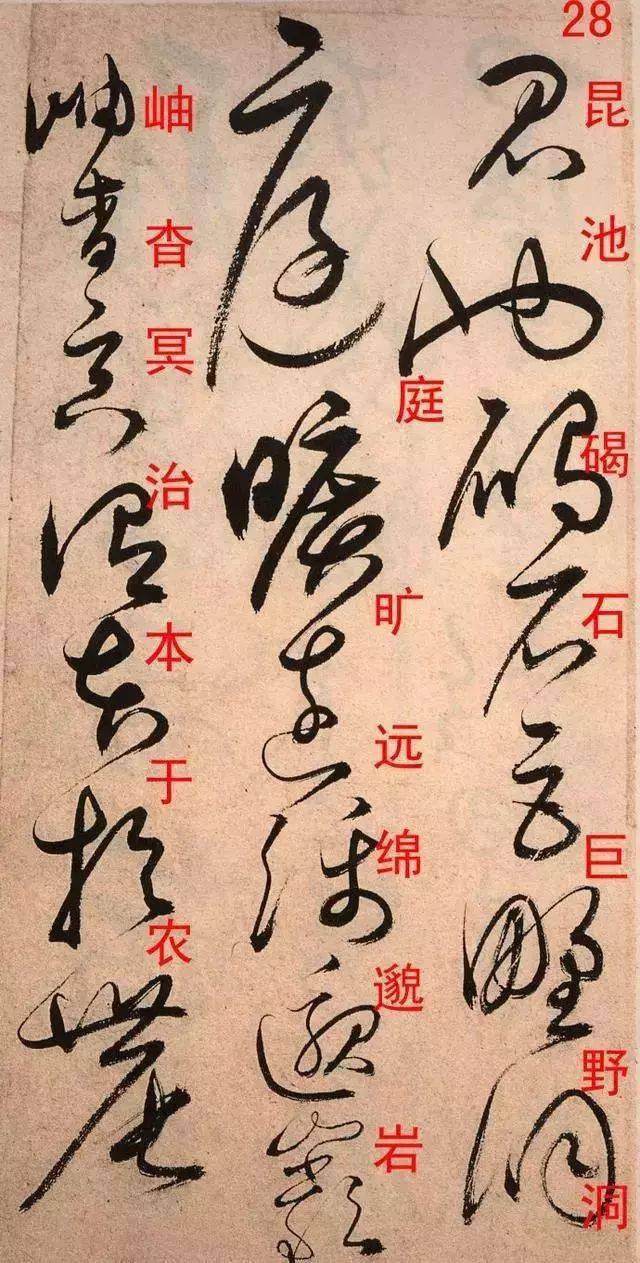 28
昆池碣石巨野洞
庭旷远绵邈岩
岫杳冥治本于农